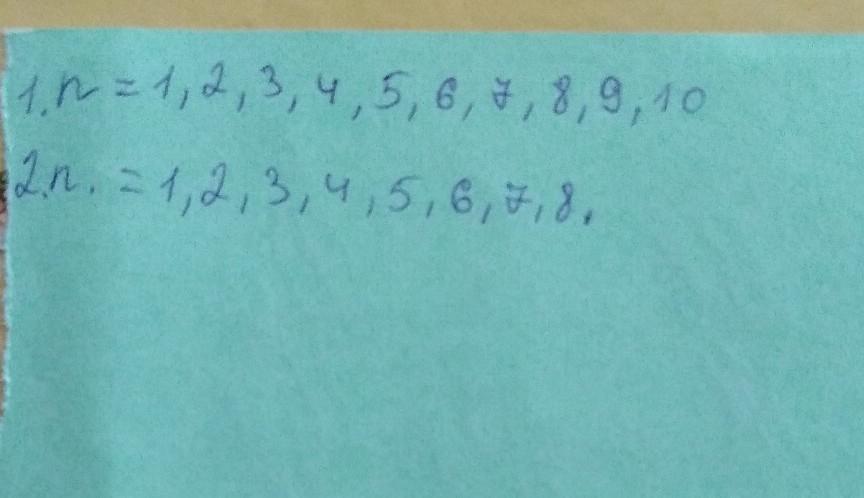 1.n = 1, 2, 3, 4, 5, 6, 7, 8, 9, 10
2.n. = 1, 2, 3, 4, 5, 6, 7, 8.